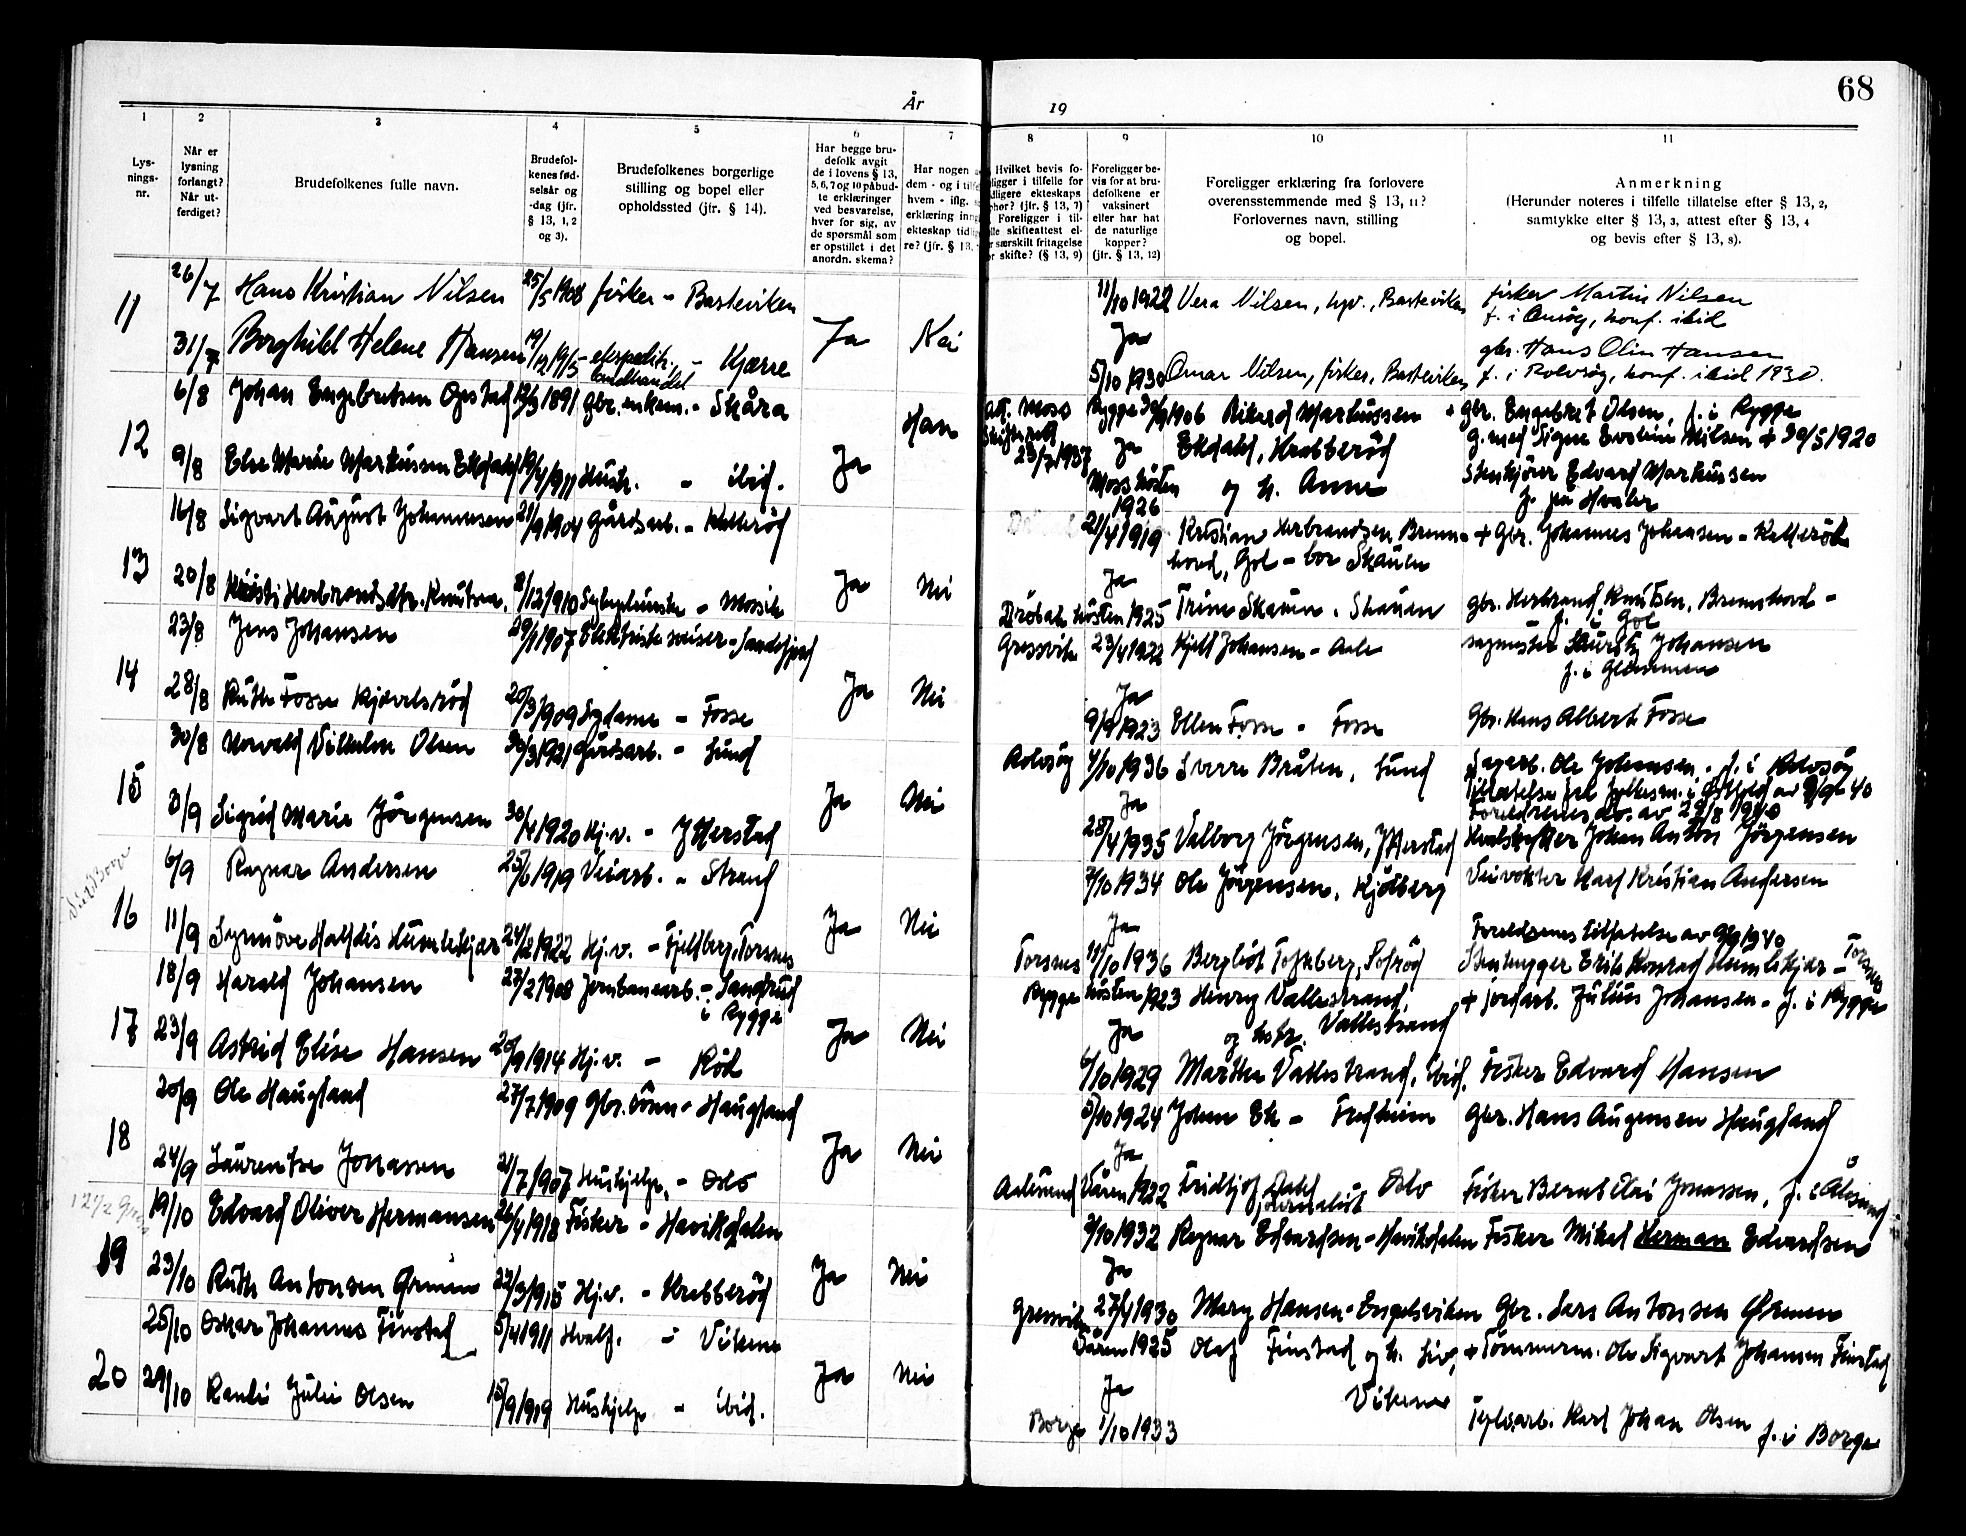 År
19
68
1
2
3
4
5
6
7
8
9
10
11
Lys-
nings-
nr.
Når er
lysning
forlangt?
Når ut-
ferdiget?
Brudefolkenes fulle navn.
Brudefol-
kenes fød-
selsår og
-dag (jfr.
§ 13, 1, 2
og 3).
Brudefolkenes borgerlige
stilling og bopel eller
opholdssted (jfr. § 14).
Har begge bru-
defolk avgit
de i lovens § 13,
5, 6, 7 og 10 påbud-
te erklæringer
ved besvarelse,
hver for sig, av
de spørsmål som
er opstillet i det
anordn. skema?
Har nogen
dem - og i
hvem - iflg.
erklæring
ekteskap
re? (jfr. § 13,
Hvilket bevis fo-
ligger i tilfelle for
dligere ekteskaps
phør? (jfr. § 13, 7)
Foreligger i til-
lle skifteattest el-
r særskilt fritagelse
r skifte? (§ 13, 9)
Foreligger be-
vis for at bru-
defolkene er
vaksinert
eller har hat
de naturlige
kopper?
(jfr. § 13, 12)
Foreligger erklæring fra forlovere
overensstemmende med § 13, 11?
Forlovernes navn, stilling
og bopel.
Anmerkning
(Herunder noteres i tilfelle tillatelse efter § 13, 2,
samtykke efter § 13, 3, attest efter § 13, 4
og bevis efter § 13, 8).
11 26/7 Hans Kristian Nilsen 25/5 1908 fisker - Basteviken 11/10 1922 Vera Nilsen, Basteviken fisker Martin Nilsen
f. i Onsøy, konf. ibid
31/7 Borghild Helene Hansen 19/12 1915 ekspeditr. landhandel - Kjærre Ja Nei Ja gbr. Hans Olin Hansen
5/10 1930 Omar Nilsen, fisker, Basteviken f. i Rolvsøy, konf. ibid 1930.
12 6/8 Johan Engebretsen Opstad 1891 gbr. enkem. - Skåra Han Moss 23/7 1937 Rygge 1906 Rikard Markussen gbr. Engebret Olsen, f. i Rygge
Ekdahl, Krabberød g. med Signe Eveline Nilsen + 30/5 1920
9/8 Else Marie Markussen Ekdahl 19/4 1911 Hush. - ibid. Ja Ja Moss høsten 1926 og h. Anne Stenkjører Edvard Markussen
f. på Hvaler
13 16/8 Sigvart August Johannesen 21/9 1904 Gårdsarb. - Kallerød 21/4 1919 Kristian Herbrandsen Brenn-
hovd, Gol - bor Skauen + Gbr. Johannes Johansen - Kallerød
20/8 Kristi Herbrandsdtr. Knutsen 8/12 1910 Sykepleierske - Mossik Ja Nei Ja Drøbak høsten 1925 Trine Skauen. Skauen gbr. Herbrand Knutsen, Brennhovd -
f. i Gol
14 23/8 Jens Johansen 29/1 1907 Elektriske - Sandefjord Gressvik 23/4 1922 Kjell Johansen - Aale sagmester Laurits Johansen
f. i Glemmen
28/8 Ruth Fosse Kjævelsrød 20/3 1909 Sydame - Fosse Ja Nei Ja 9/9 1923 Ellen Fosse - Fosse Gbr. Hans Albert Fosse
15 30/8 Norvald Vilhelm Olsen 30/3 1921 Gårdsarb. - Lund Rolvsøy 4/10 1936 Sverre Bråten, Lund Sagarb. Ole Johansen. f. i Rolvsøy
Tillatelse fra fylkesm. i Østfold av 2/9-40
Foreldrenes do. av 29/8 1940
3/9 Sigrid Marie Jörgensen 30/4 1920 Hj.v. - Ytterstad Ja Nei Ja 28/4 1935 Valborg Jörgensen, Ytterstad Johan Anton Jörgensen
16 6/9 Ragnar Andersen 25/6 1919 Veiarb. - Strand 7/10 1934 Ole Jörgensen, Kjölberg Veivokter Karl Kristian Andersen
Foreldrenes tillatelse av 9/9 1940
11/9 Synnöve Halfdis Humlekjær 24/2 1922 Hj.v. - Fjellberg, Torsnes Ja Nei Ja Torsnes 11/10 1936 Bergliot Sofröd Stenhugger Erik Konrad Humlekjær - Torsnes
17 18/9 Harald Johansen 23/2 1908 Jernbanearb. - Sandrud
i Rygge Rygge høsten 1923 Henry Vallestrand,
og hstr. Vallestrand + jordarb. Julius Johansen - f. i Rygge
23/9 Astrid Elise Hansen 20/9 1914 Hj.v. - Röd Ja Nei Ja 6/10 1929 Marthe Vallestrand, ibid. Fisker Edvard Hansen
18 20/9 Ole Haugland 27/7 1909 Gbr.sönn - Haugland 5/10 1924 Johan Ek - Fredheim Gbr. Hans Augensen Haugland
24/9 Laurentse Jonassen 21/7 1907 Hushjelp. - Oslo Ja Nei Ja Aalesund Våren 1922 Fridtjof Dahl journalist Oslo Fisker Bernt Jonassen, f. i Ålesund
19 19/10 Edvard Oliver Hermansen 26/4 1918 Fisker - Haviksdalen 2/10 1932 Ragnar Edvardsen - Haviksdalen Fisker Mikal Herman Edvardsen
23/10 Ruth Antonsen Ørmen 22/3 1915 Hj.v. - Krabberød Ja Nei Ja Gressvik 27/4 1930 Mary Hansen - Engelsviken Gbr. Lars Antonsen Ørmen
20 25/10 Oskar Johannes Finstad 5/4 1911 Hvalf. - Vikene Våren 1925 Olaf Finstad og h. Liv,
Vikene + Tømmerm. Ole Sigvart Johansen Finstad
29/10 Randi Julie Olsen 15/9 1919 Hushjelp - ibid. Ja Nei Ja Borge 1/10 1933 Teglv.arb. Karl Johan Olsen f. i Borge